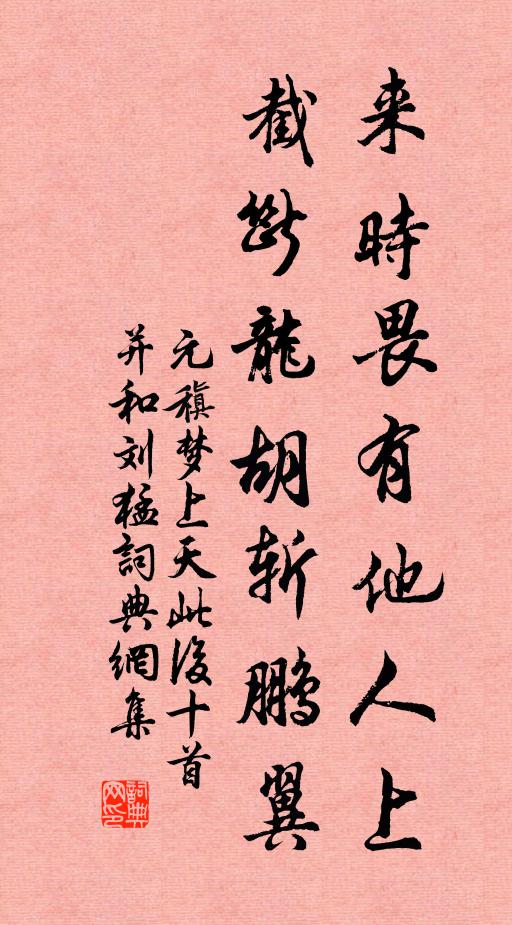 来時畏有他人上
截斷龍胡斬鵬翼
元稹梦上天此後十首
并和刘猛詞典網集
詞典
网印